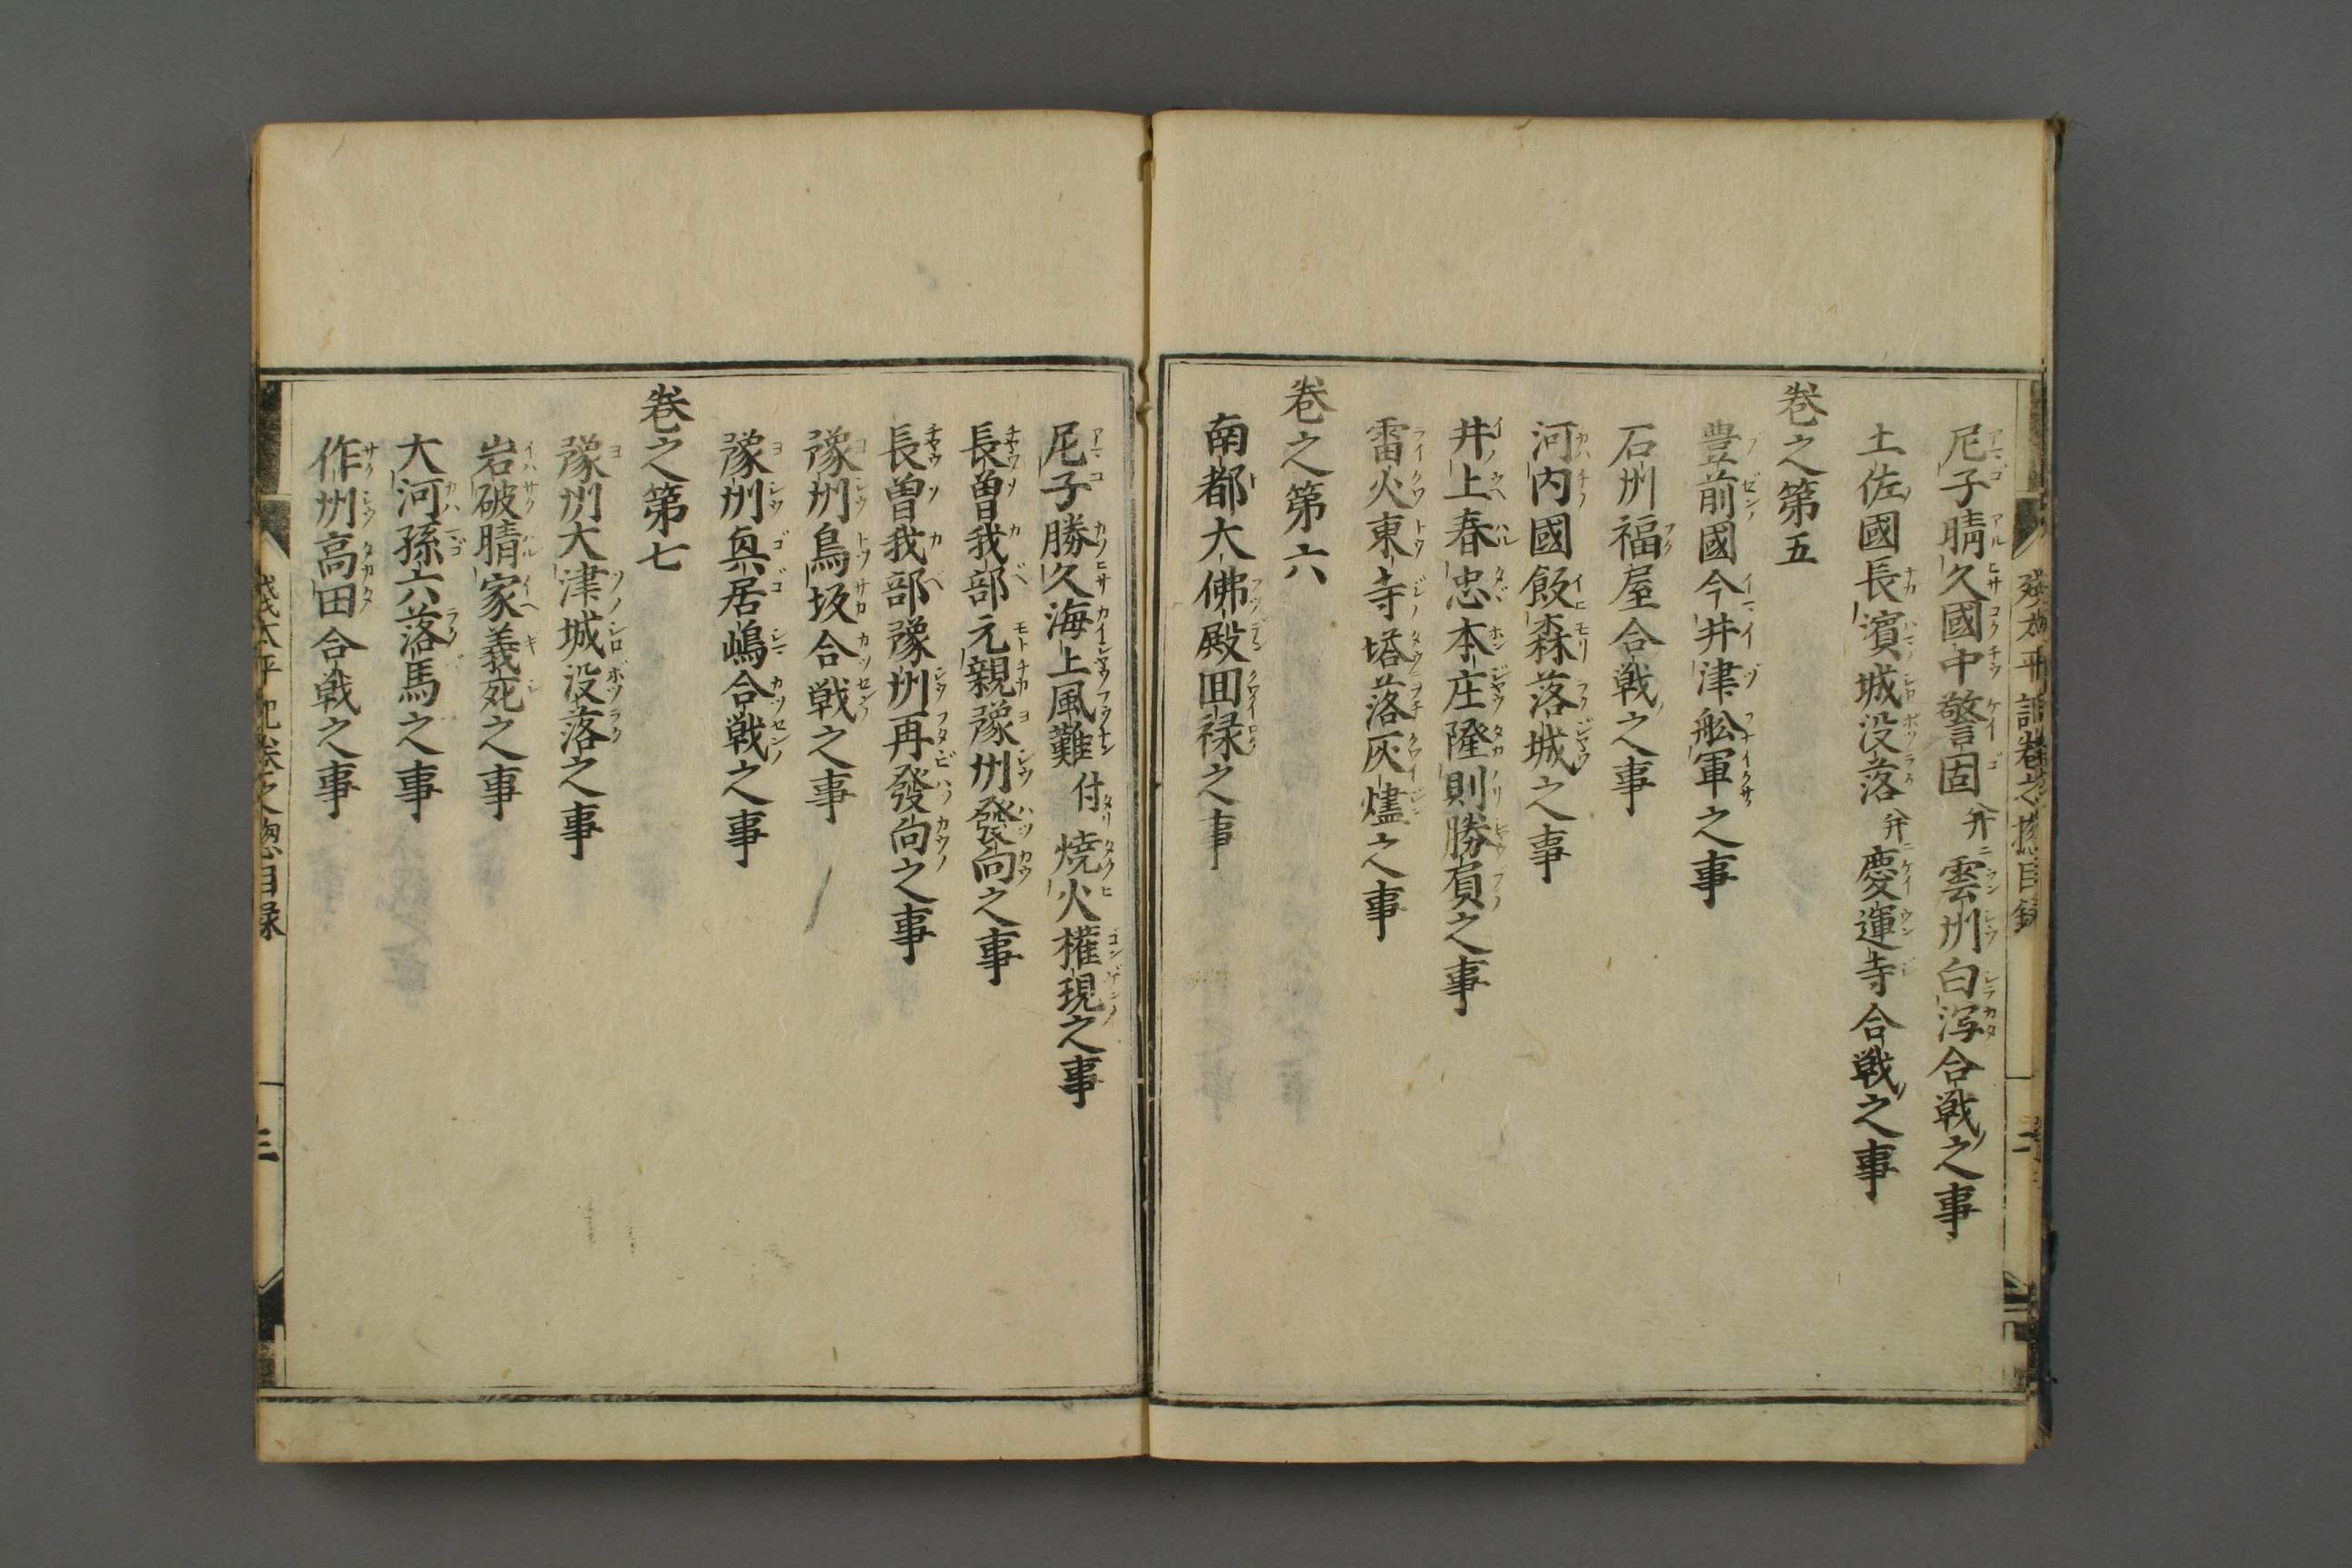 尼子晴久國中警固并雲州白潟合戦之事
土佐國長濱城没落并慶運寺合戦之事
巻之第五
豊前國今井津舩軍之事
石州福屋合戦之事
河内國飯森落城之事
井上春忠本庄隆則勝負之事
雷火東寺塔落灰燼之事
巻之第六
南都大佛殿囬禄之事
尼子勝久海上風難付焼火権現之事
長曽我部元親豫州發向之事
長曽我部豫州再發向之事
豫州鳥坂合戦之事
豫州奥居嶋合戦之事
巻之第七
豫州大津城没落之事
岩破晴家義死之事
大河孫六落馬之事
作州高田合戦之事
太平記巻之惣目録
三